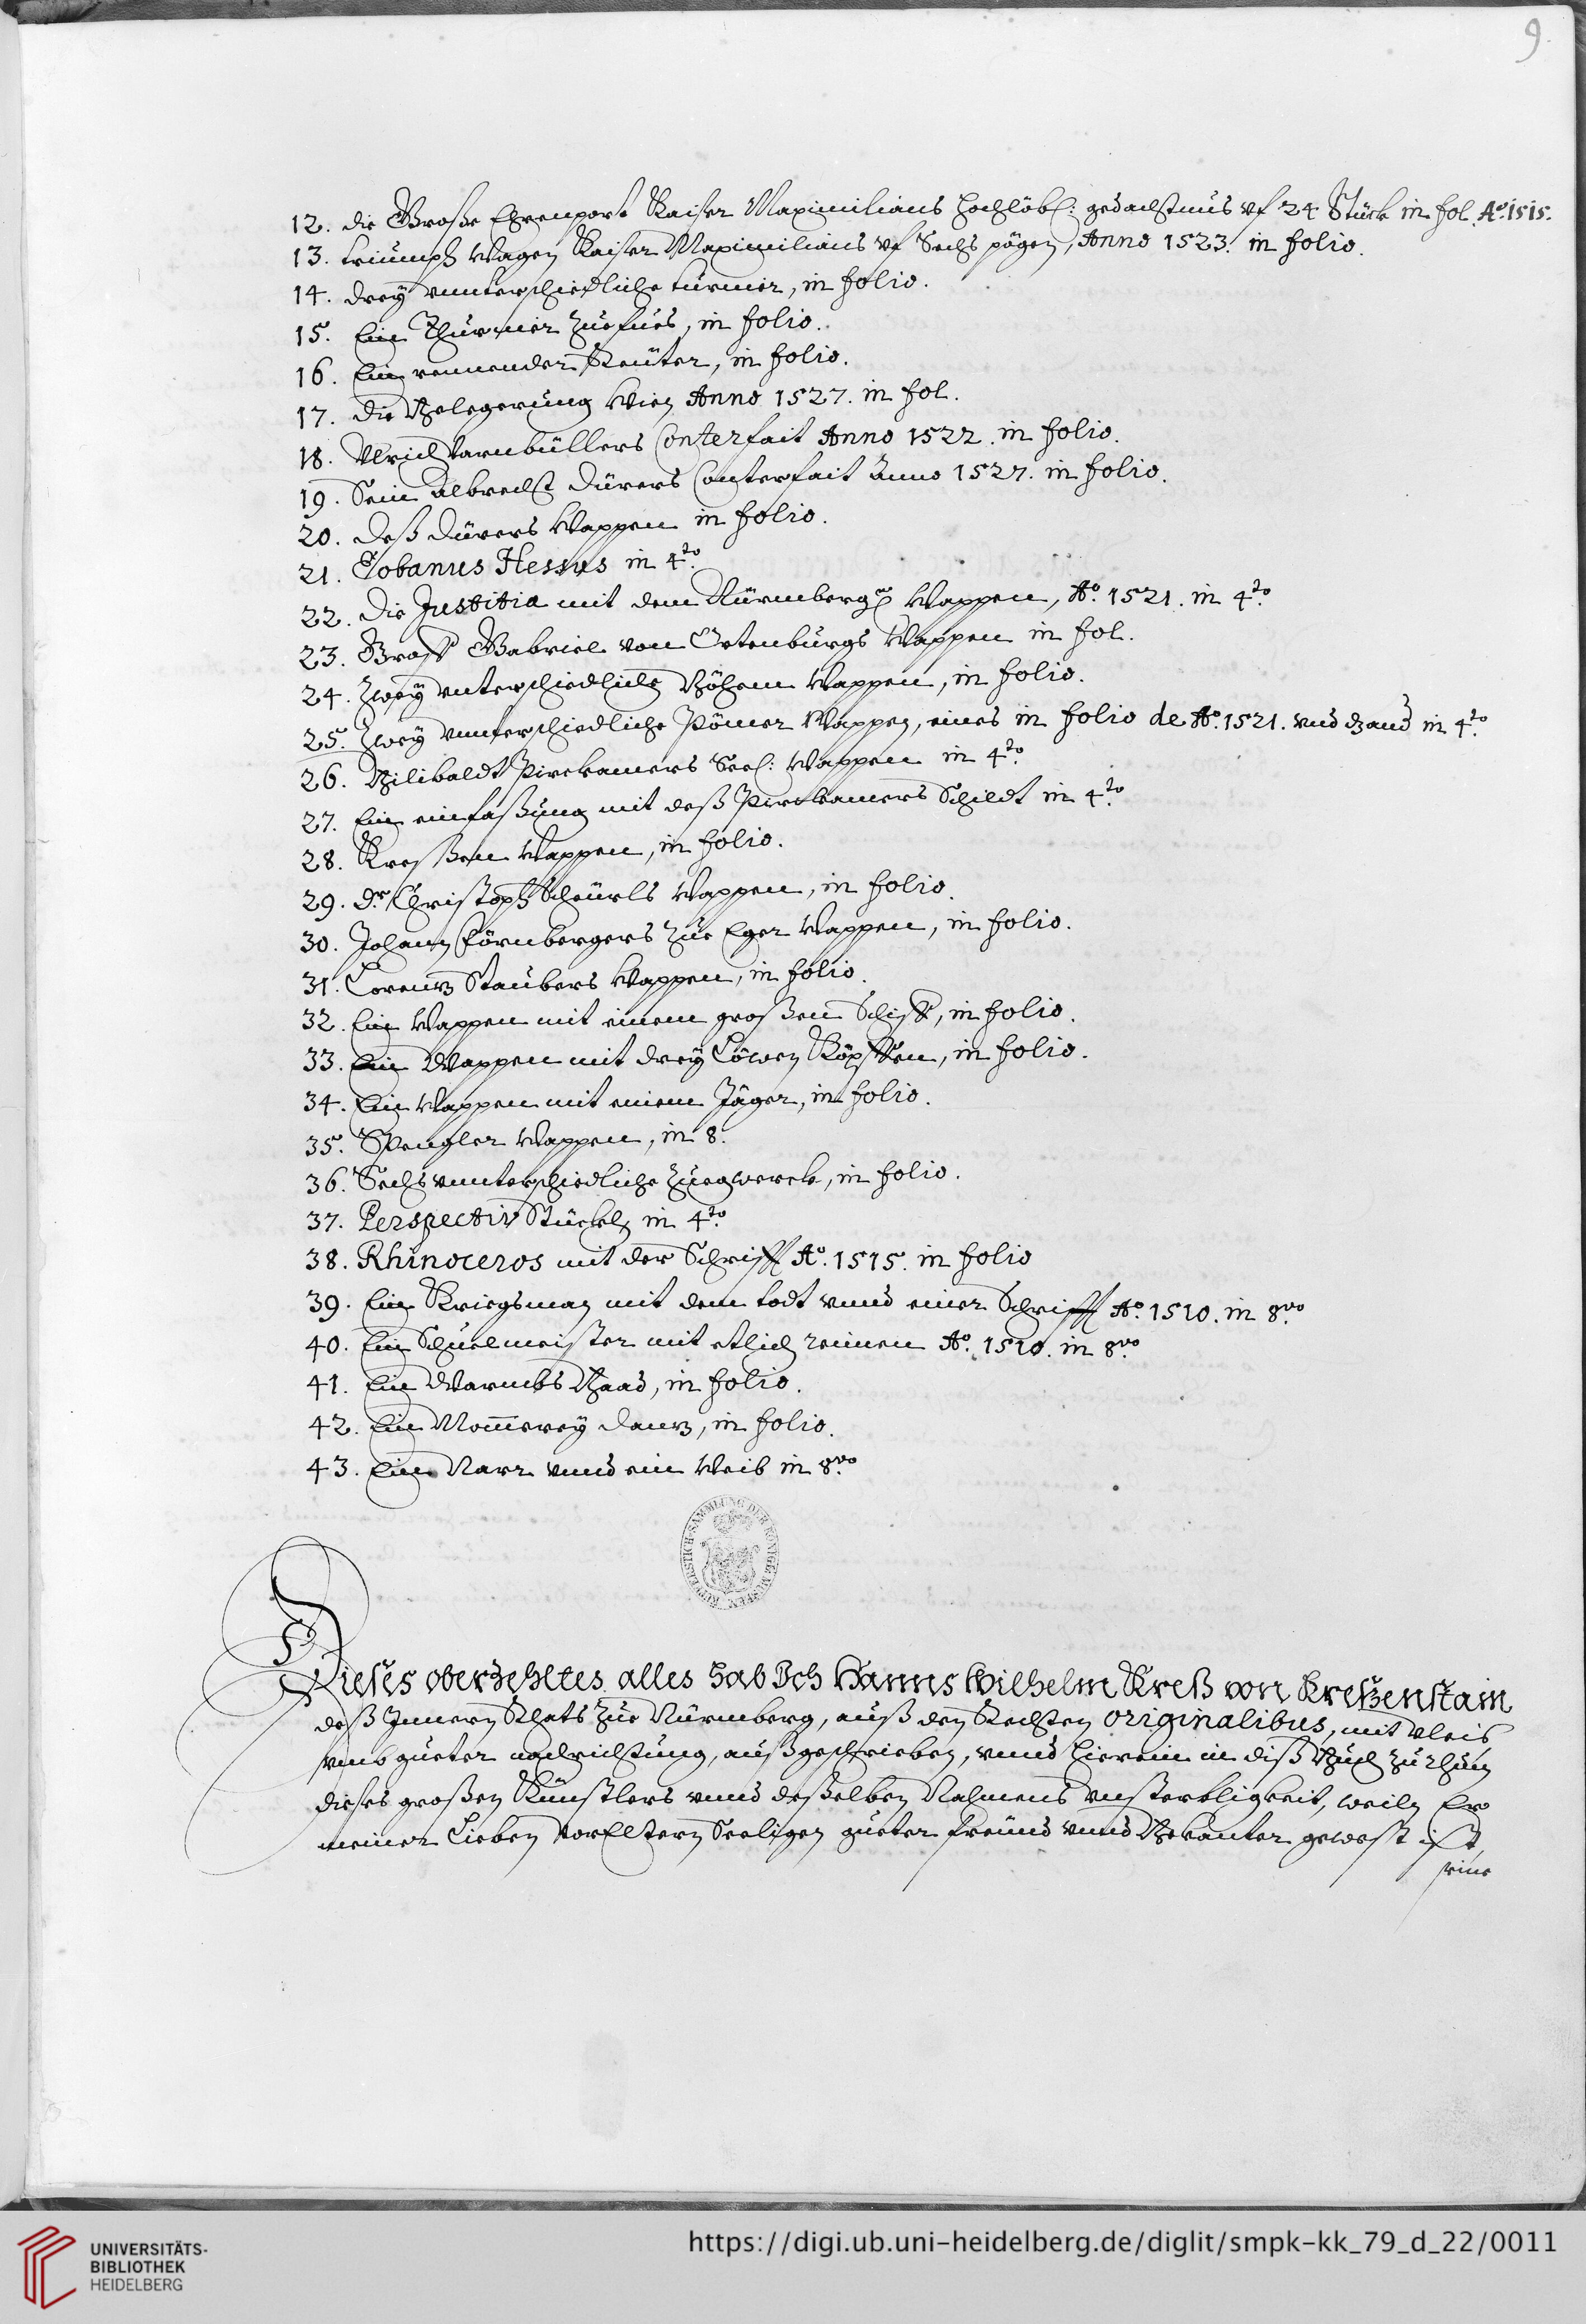 9
12. die Große Ehrenport Kaiser Maximilians hochlöbl: gedachtnus vf 24 Stück in fol. Aº 1515.
13. triumph Wagen Kaiser Maximilians vf Sechs pögen, Anno 1523. in folio.
14. drey vnnterschiedliche turnier, in folio.
15. Ein Thurnier zue fues, in folio.
16. Ein rennender Reüter, in folio.
17. die Belegerung Wien Anno 1527. in fol.
18. Vlrich Varnbüllers Conterfait Anno 1522. in folio.
19. Sein Albrecht Dürers Conterfait Anno 1527. in folio.
20. deß Dürers Wappen in folio.
21. Eobanus Hessus in 4to.
22. Die Justitia mit dem Nürmberg: Wappen, Aº. 1521. in 4to.
23. Graff Gabriel von Ortenburgs Wappen in fol.
24. Zwey vnterschiedliche Böhem Wappen, in folio.
25. Zwey vnnterschiedliche Pömer Wappen, eines in folio de Aº. 1521. vnd dz and in 4to.
26. Bilibaldt Pirckamers Seel: Wappen in 4to.
27. Ein einfaßung mit deß Pirckamers Schildt in 4to.
28. Kreßen Wappen, in folio.
29. Dr. Christoph Scheürls Wappen, in folio.
30. Johann Förnbergers zue Eger Wappen, in folio.
31. Lorenz Staubers Wappen, in folio.
32. Ein Wappen mit einem großen Schiff, in folio.
33. Ein Wappen mit drey Löwen Köpffen, in folio.
34. Ein Wappen mit einem Jäger, in folio.
35. Spengler Wappen, in 8.
36. Sechs vnnterschiedliche Zuegwerck, in folio.
37. Perspectiv Stückel, in 4to.
38. Rhinoceros mit der Schrifft Aº. 1515. in folio
39. Ein Kriegsman mit dem todt vnnd einer Schrifft Aº. 1510. in 8vo.
40. Ein Schuelmeister mit etlich reimen Aº. 1510. in 8vo.
41. Ein Warmbs Baad, in folio.
42. Ein Mommerey danz, in folio.
43. Ein Narr vnnd ein Weib in 8vo.
KUPFERSTICH-SAMMLUNG DER KÖNIGL. MUSEEN
Dieses oberzehltes alles hab Ich Hanns Wilhelm Kreß von Kreßenstain
deß Innern Rhats zue Nürmberg, auß den Rechten originalibus, mit vleis
vmb gueter nachrichtung, außgeschrieben, vnnd hierein in diß Buch zu thun
dieses großen Künstlers vnnd deßelben Nahmens vnsterbligkeit, weiln Er
meiner Lieben VorEltern Seeligen gueter freund vnnd Bekanter gewest ist,
seine
UNIVERSITÄTS-
BIBLIOTHEK
HEIDELBERG
https://digi.ub.uni-heidelberg.de/diglit/smpk-kk_79_d_22/0011